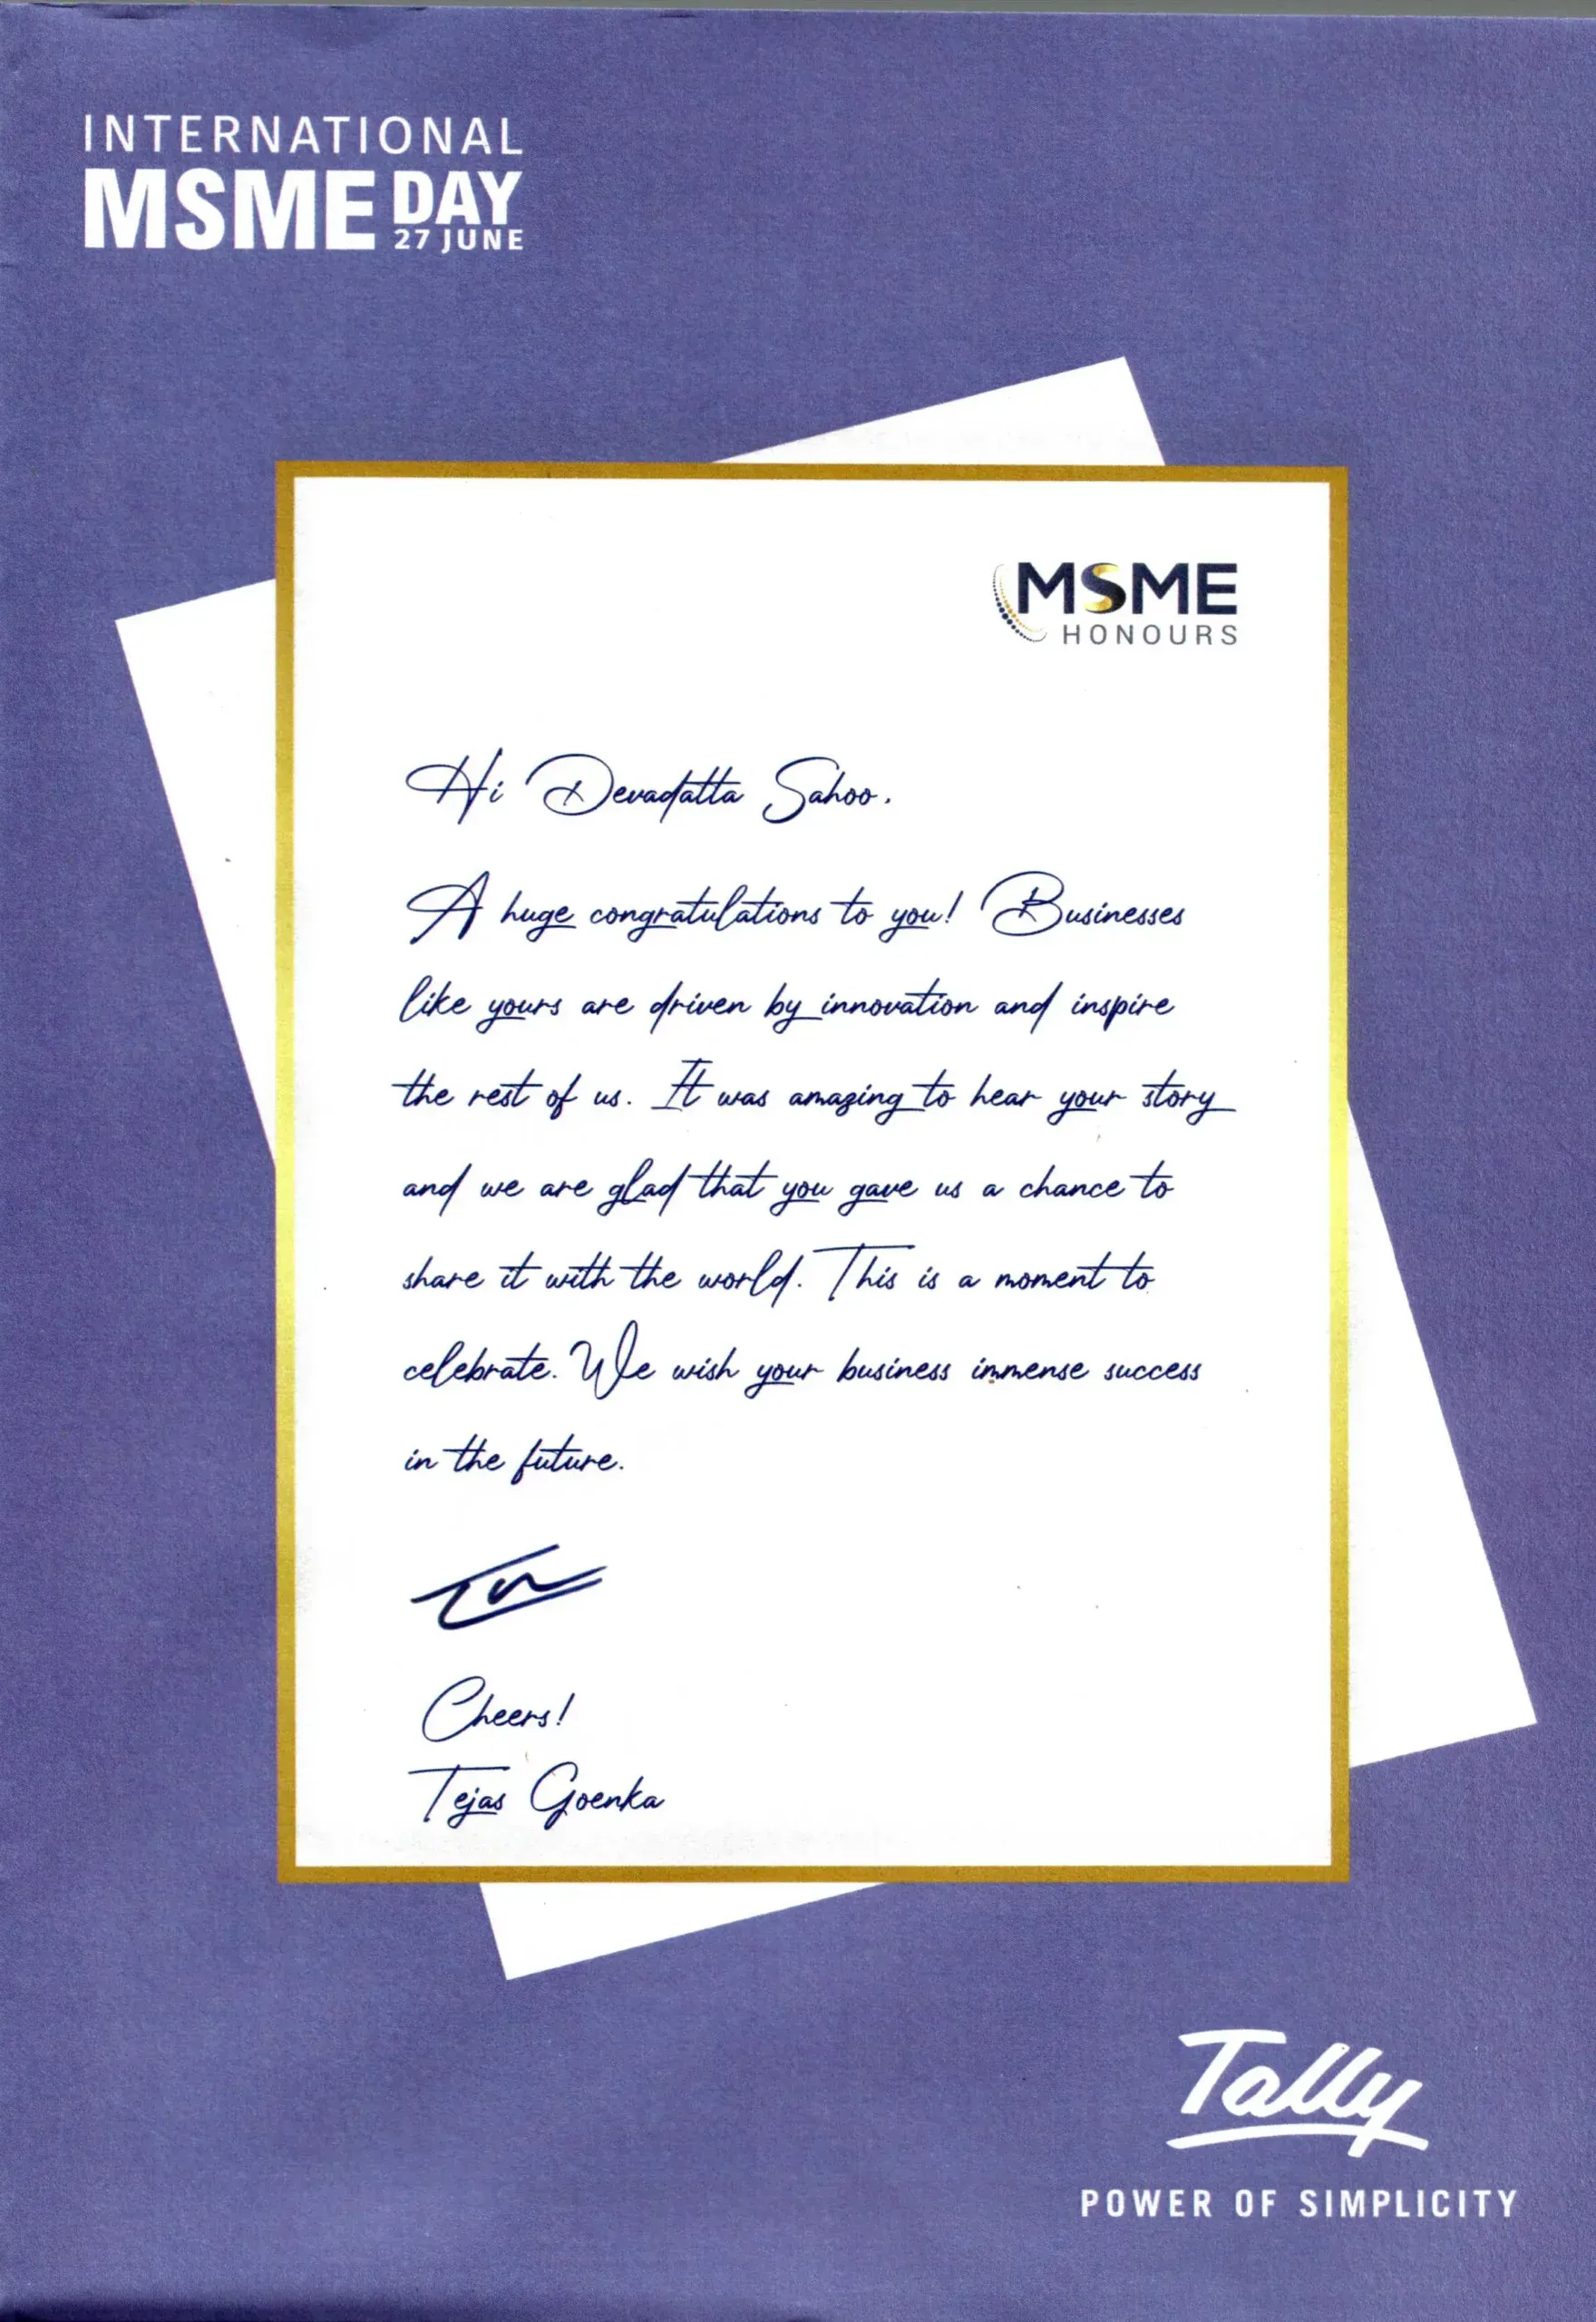 INTERNATIONAL
MSME DAY
27 JUNE
MSME
HONOURS
Hi Devadatta Sahoo.
A huge congratulations to you! Businesses
like yours are driven by innovation and inspire
the rest of us. It was amazing to hear your story
and we are glad that you gave us a chance to
share it with the world. This is a moment to
celebrate. We wish your business immense success
in the future.
Cheers!
Tejas Goenka
Tally
POWER OF SIMPLICITY